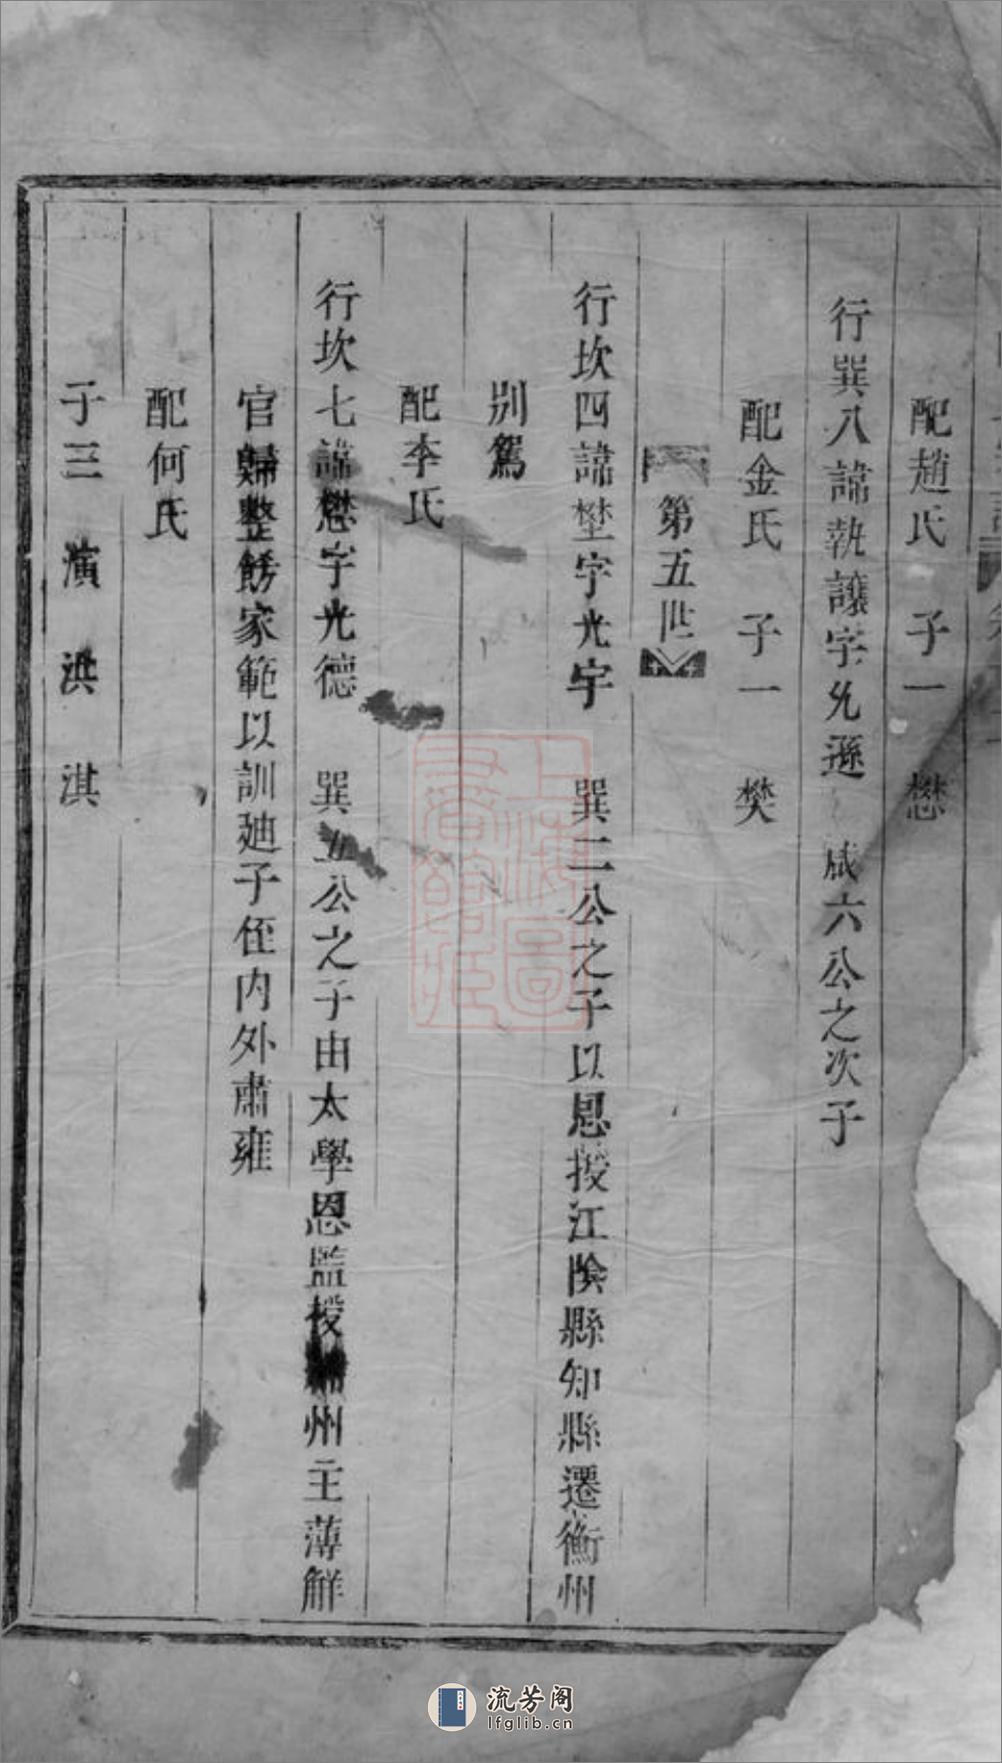 配趙氏 子一 懋
行巽八諱執讓字允遜 咸六公之次子
配金氏 子一 樊
第五世
行坎四諱埜字光宇 巽二公之子以恩授江陰縣知縣遷衡州
別駕
配李氏
行坎七諱懋字光德 巽五公之子由太學恩監授州主薄觧
官歸整飭家範以訓廸子侄内外肅雍
配何氏
子三 演 洪 淇
上海圖書館藏
流芳阁
lfglib.cn